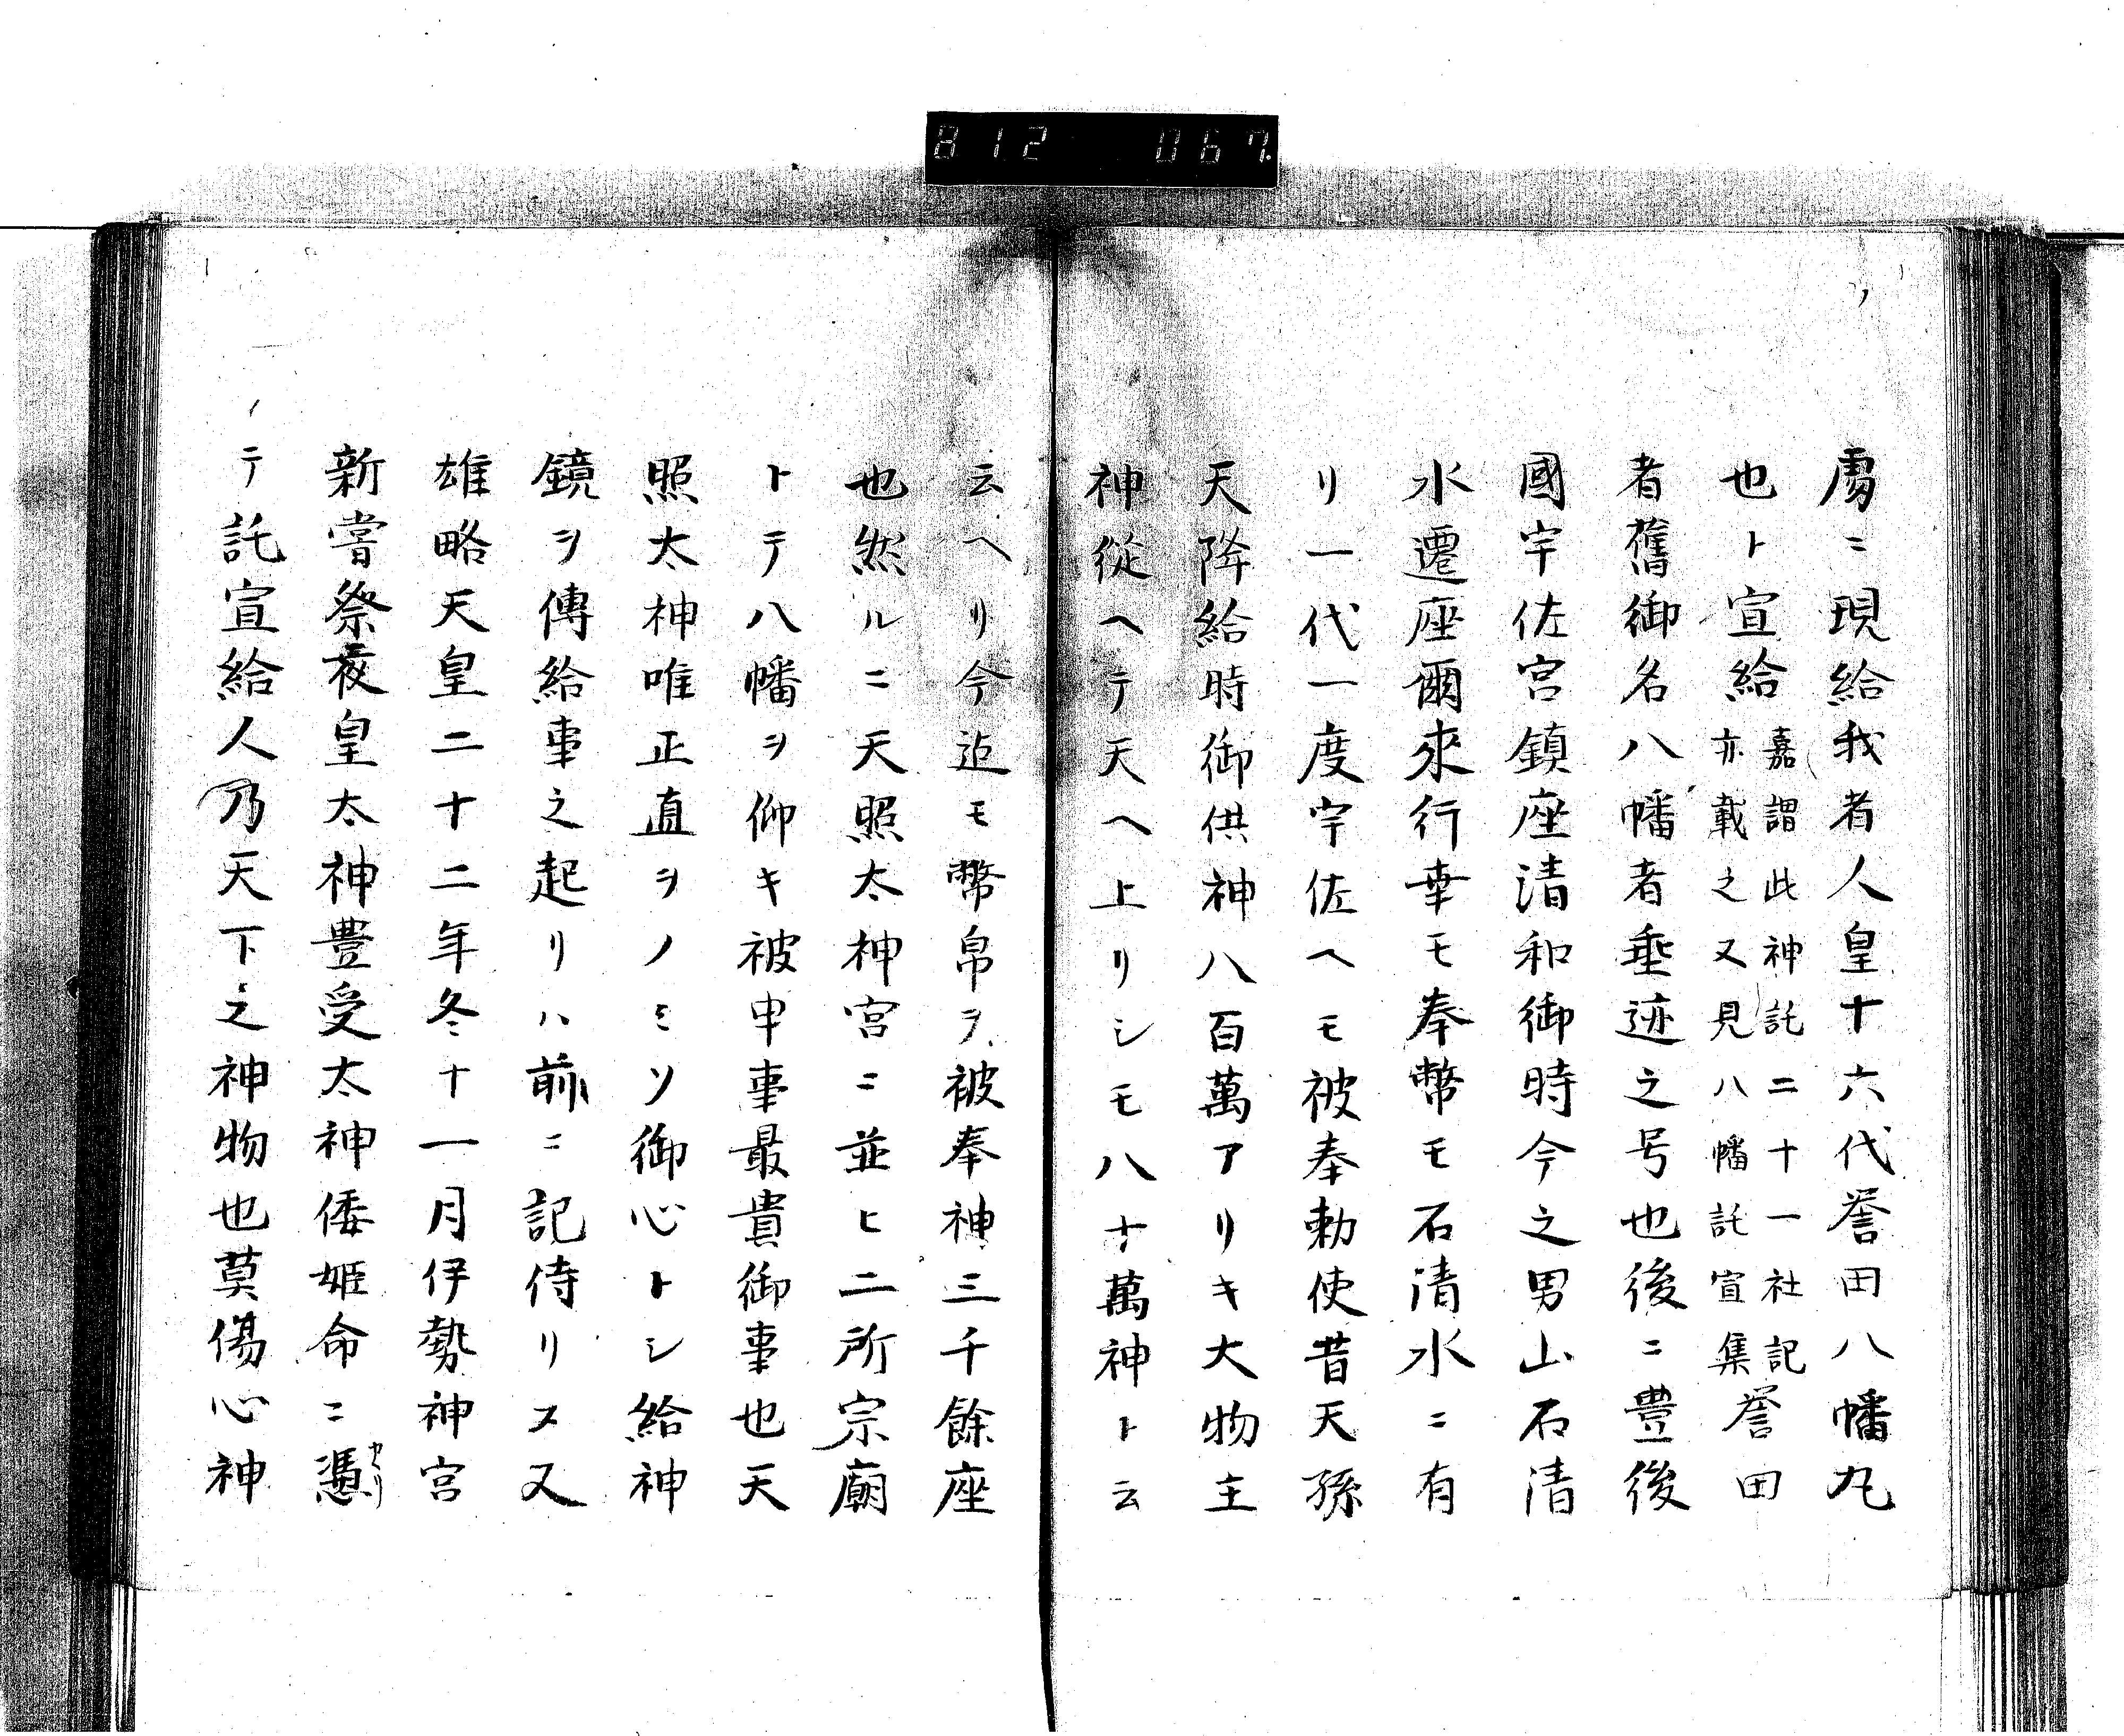 812 067
禹ニ現給我者人皇十六代誉田八幡丸
也ト宣給
嘉謂此神託二十一社記
亦載之又見八幡託宣集
誉田
者舊御名八幡者垂迹之号也後ニ豊後
國宇佐宮鎮座清和御時今之男山石清
水遷座爾來行幸モ奉幣モ石清水ニ有
リ一代一度宇佐ヘモ被奉勅使昔天孫
天降給時御供神八百萬アリキ大物主
神從ヘテ天ヘ上リシモ八十萬神ト云
云ヘリ今迠モ幣帛ヲ被奉神三千餘座
也然ルニ天照太神宮ニ並ヒ二所宗廟
トテ八幡ヲ仰キ被申事最貴御事也天
照太神唯正直ヲノミソ御心トシ給神
鏡ヲ傳給事之起リハ前ニ記侍リヌ又
雄略天皇二十二年冬十一月伊勢神宮
新嘗祭夜皇太神豊受太神倭姫命ニ憑
カヽリ
テ託宣給人乃天下之神物也莫傷心神